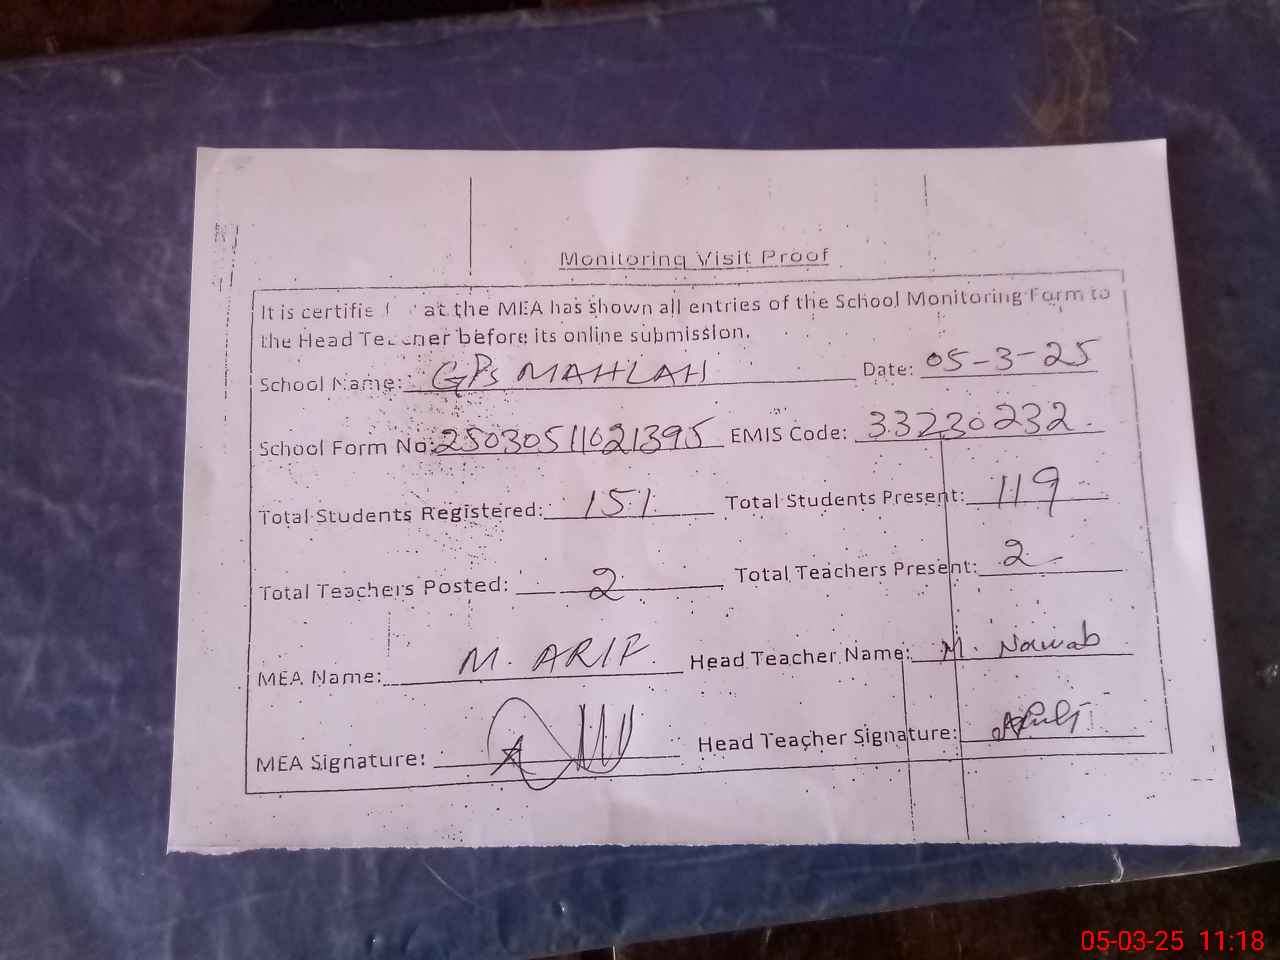 Monitoring Visit Proof
It is certifie at the MEA has shown all entries of the School Monitoring Form to
the Head Teacher before its online submission.
School Name: GPS MAHLAH Date: 05-3-25
School Form No: 25030511021395 EMIS Code: 33230232
Total Students Registered: 151 Total Students Present: 119
Total Teachers Posted: 2 Total Teachers Present: 2
MEA Name: M. ARIF Head Teacher Name: M. Nawab
MEA Signature: Head Teacher Signature:
05-03-25 11:18